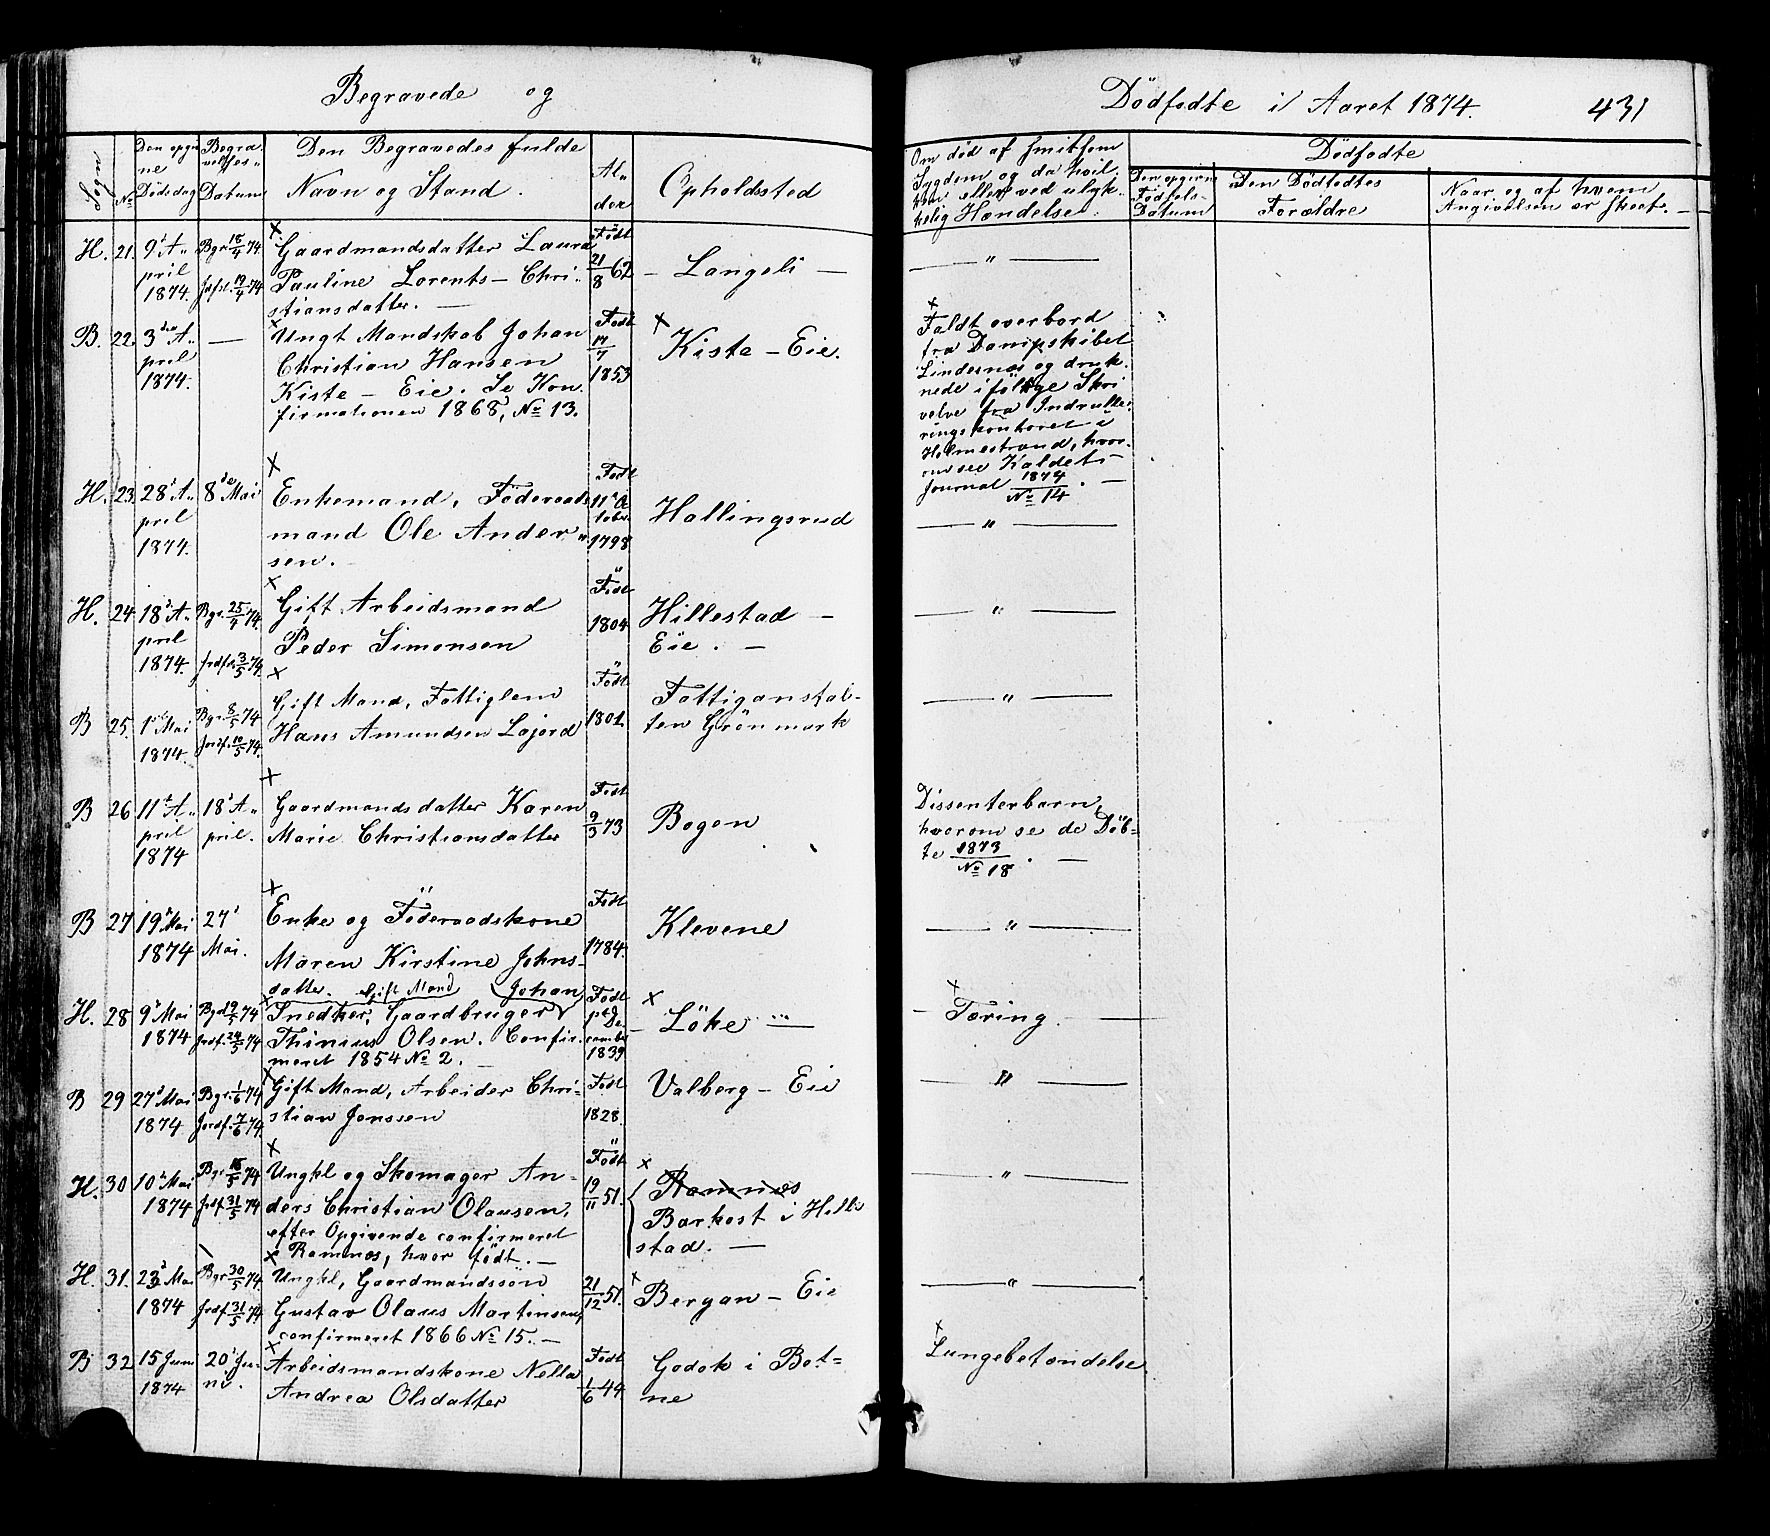 Begravede og
Dödfödte i Aaret 1874. 431
Sogn
No
Den opgivne Dödsdag
Begravelses Datum
Den Begravedes fulde
Navn og Stand.
Alder
Opholdssted
Om död af smitsom
Sygdom og da hvilken eller ved ulykkelig Hændelse.
Dödfödte
Den opgivne Födsels-Datum
Den Dödfödtes
Forældre
Naar og af hvem
Angivelsen er skeet.
H. 21. 9d A-
pril
1874.
Bgr. 18/4 74
Jrdf. 19/4 74
Gaardmandsdatter Laura
Pauline Lorents- Chri-
stiansdatter.
Födt
21/8 62
Langeli
"
B. 22. 3die A-
pril
1874.
Ungt Mandskab Johan
Christian Hansen
Kiste - Eie. Se Kon
firmationen 1868, No 13.
Födt
17/7
1853
Kiste - Eie.
Faldt overbord
fra Dampskibet
Lindesnæs og druk-
nede ifölge Skri
velse fra Indrulle-
ringskontoret i
Holmestrand, hvor-
om see Kaldets
Journal 1874
No 14.
H. 23. 28d A-
pril
1874.
8de Mai
Enkemand, Föderaads
mand Ole Ander-
sen.
Födt
11d Oc
tober
1798
Hallingsrud
"
H. 24. 18d A-
pril
1874.
Bgr. 25/4 74.
Jrdf. 3/5 74.
Gift Arbeidsmand
Peder Simonsen
Födt
1804
Hillestad
Eie.
"
B 25. 1ste Mai
1874.
Bgr. 8/5 74
Jordf. 10/5 74.
Gift Mand, Fattiglem
Hans Amundsen Lajord
Födt
1801.
Fattiganstal-
ten Grönmark
"
B 26 11d A-
pril
1874
18d A-
pril.
Gaardmandsdatter Karen
Marie Christiansdatter
Födt
9/3 73
Bogen
Dissenterbarn,
hvorom se de Döb-
te 1873
No 18.
B 27 19d Mai
1874
27d
Mai.
Enke og Föderaadskone
Maren Kirstine Johns-
datter.
Födt
1784.
Klevene
"
Gift Mand Johan
H. 28 9d Mai
1874
Bgr 19/5 74
Jrdf. 24/5 74
Snedker, Gaardbruger
Thinius Olsen. Confir-
meret 1854 No 2.
Födt
De
cember
1839
Löke
Tæring.
B 29 27d Mai
1874
Bgr. 1/6 74
Jordf. 7/6 74.
Gift Mand, Arbeider Chri-
stian Jonssen
Födt
1828.
Valberg - Eie
"
H. 30 10d Mai
1874
Bgr 18/5 74
Jrdf. 31/5 74
Ungkl og Skomager An-
ders Christian Olausen,
efter Opgivende confirmeret
Ramnæs, hvor födt.
Födt
19/11 51.
Ramnæs
Barkost i Hille
stad.
"
H. 31. 23d Mai
1874
Bgr 30/5 74.
Jrdf. 31/5 74
Ungkl, Gaardmandssön
Gustav Olaus Martinsen,
confirmeret 1866 No 15.
21/12 51.
Bergan - Eie
"
B 32 15 Juni
1874
20d Ju-
ni.
Arbeidsmandskone Nella
Andrea Olsdatter
Födt
1/6 44
Godok i Bot-
ne
Lungebetændelse